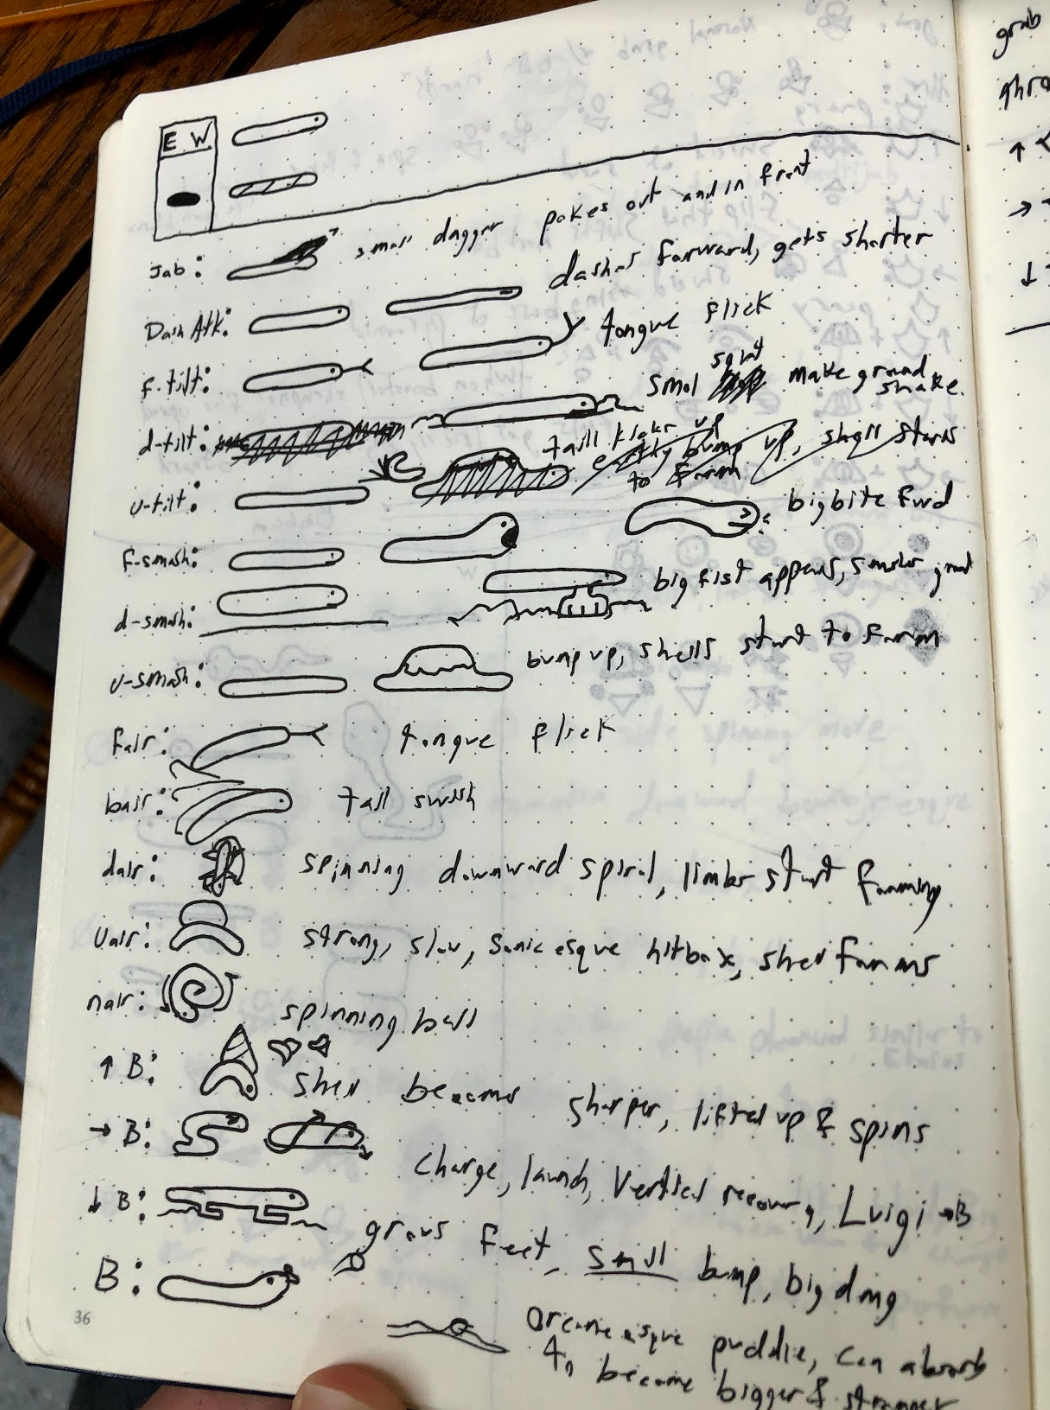 E W
grab
Jab: small dagger pokes out and in front
Dash Atk: dashes forward, gets shorter
f-tilt: tongue flick
d-tilt: smol make ground shake.
u-tilt: taill up
bump up, shell starts
to
F-smash: big bite fwd
d-smash: big fist appears,
u-smash: bump up, shells start to
fair: tongue flick
bair: tail
dair: spinning downward spiral, limbs start
uair: strong, slow, Sonic esque hitbox, shell
nair: spinning ball
↑ B: shell becomes sharper, lifted up & spins
→ B: charge, launch, vertical recovery, Luigi →B
↓ B: grows feet, small bump, big dmg
B: esque puddle, can absorb
to become bigger & stronger
36